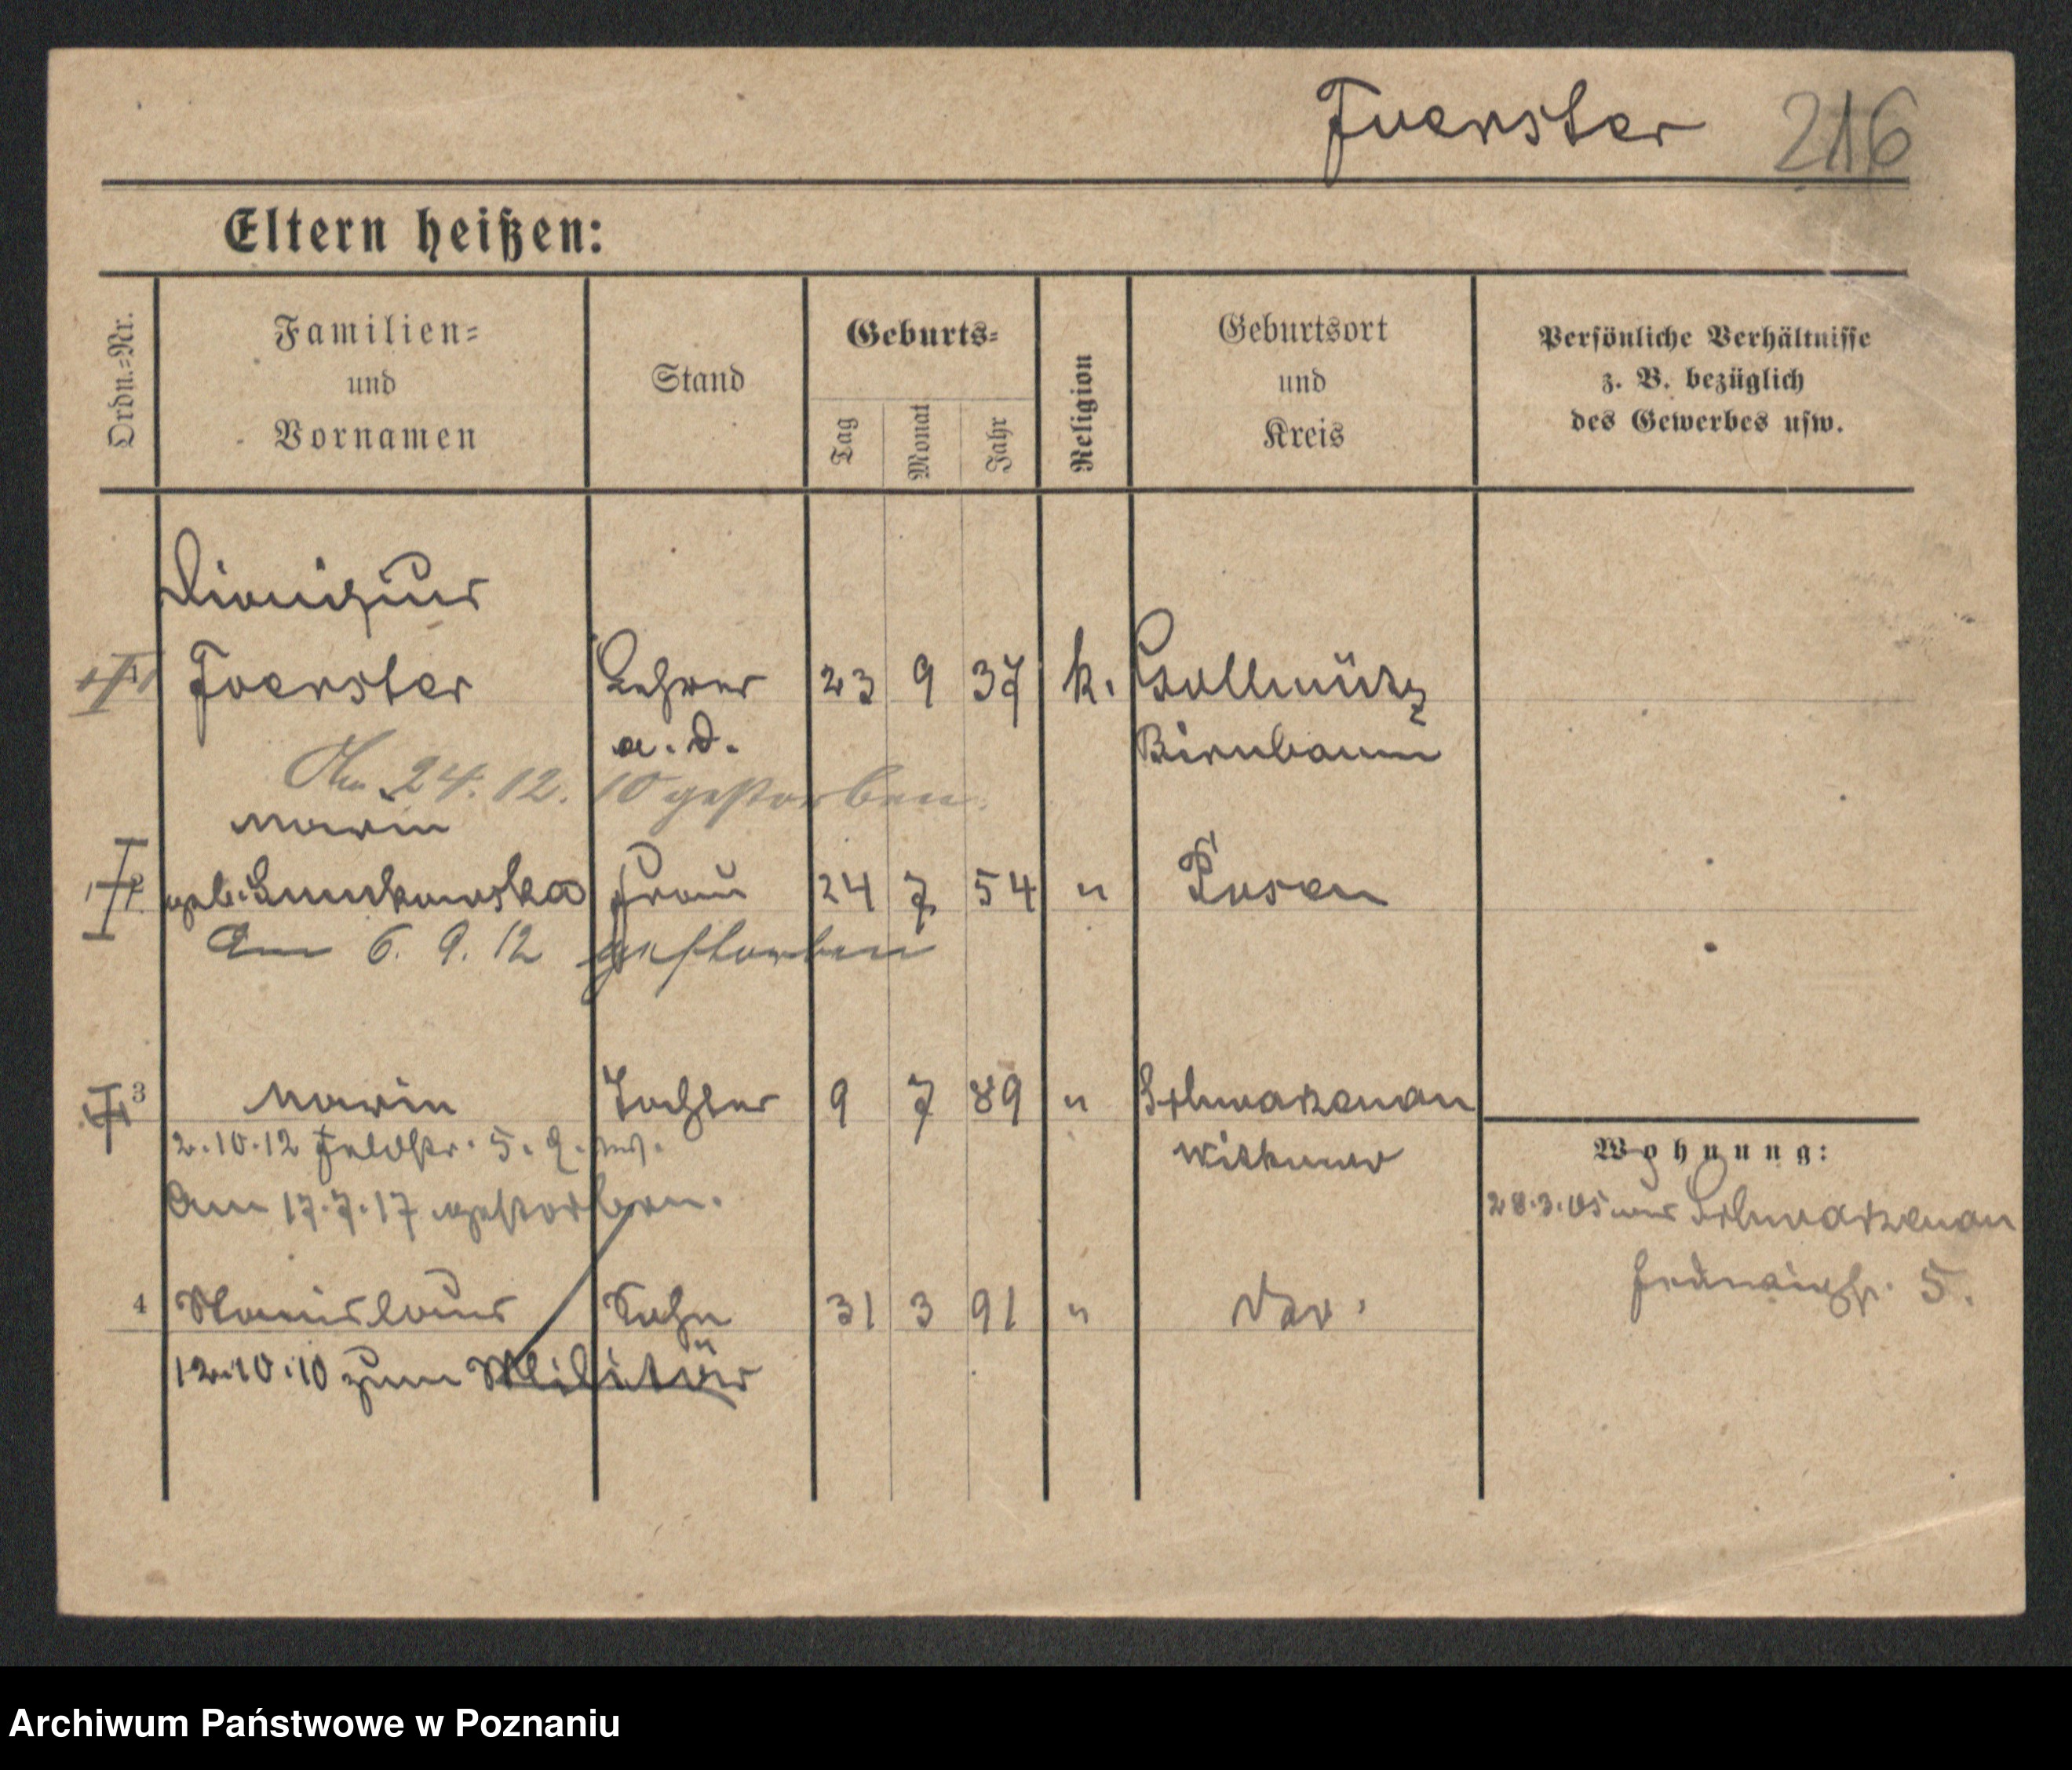 Foerster 216
Eltern heißen:
Ordn.=Nr.
Familien=
und
Vornamen
Stand
Geburts=
Tag
Monat
Jahr
Religion
Geburtsort
und
Kreis
Persönliche Verhältnisse
z. B. bezüglich
des Gewerbes usw.
Dionizius
1 Foerster Lehrer 23 9 37 k. Gollmütz
a. D. Birnbaum
Am 24. 12. 10 gestorben.
Maria
2 geb. Frau 24 7 54 " Posen
Am 6. 9. 12 gestorben
3 Maria Tochter 9 7 89 " Schwarzenau
2.10.12 Feldstr. 5. Witkowo
Am 17.7.17 gestorben.
Wohnung:
28.3.05 aus Schwarzenau
5.
4 Stanislaus Sohn 31 3 91 "
12.10.10 zum Militär
Archiwum Państwowe w Poznaniu